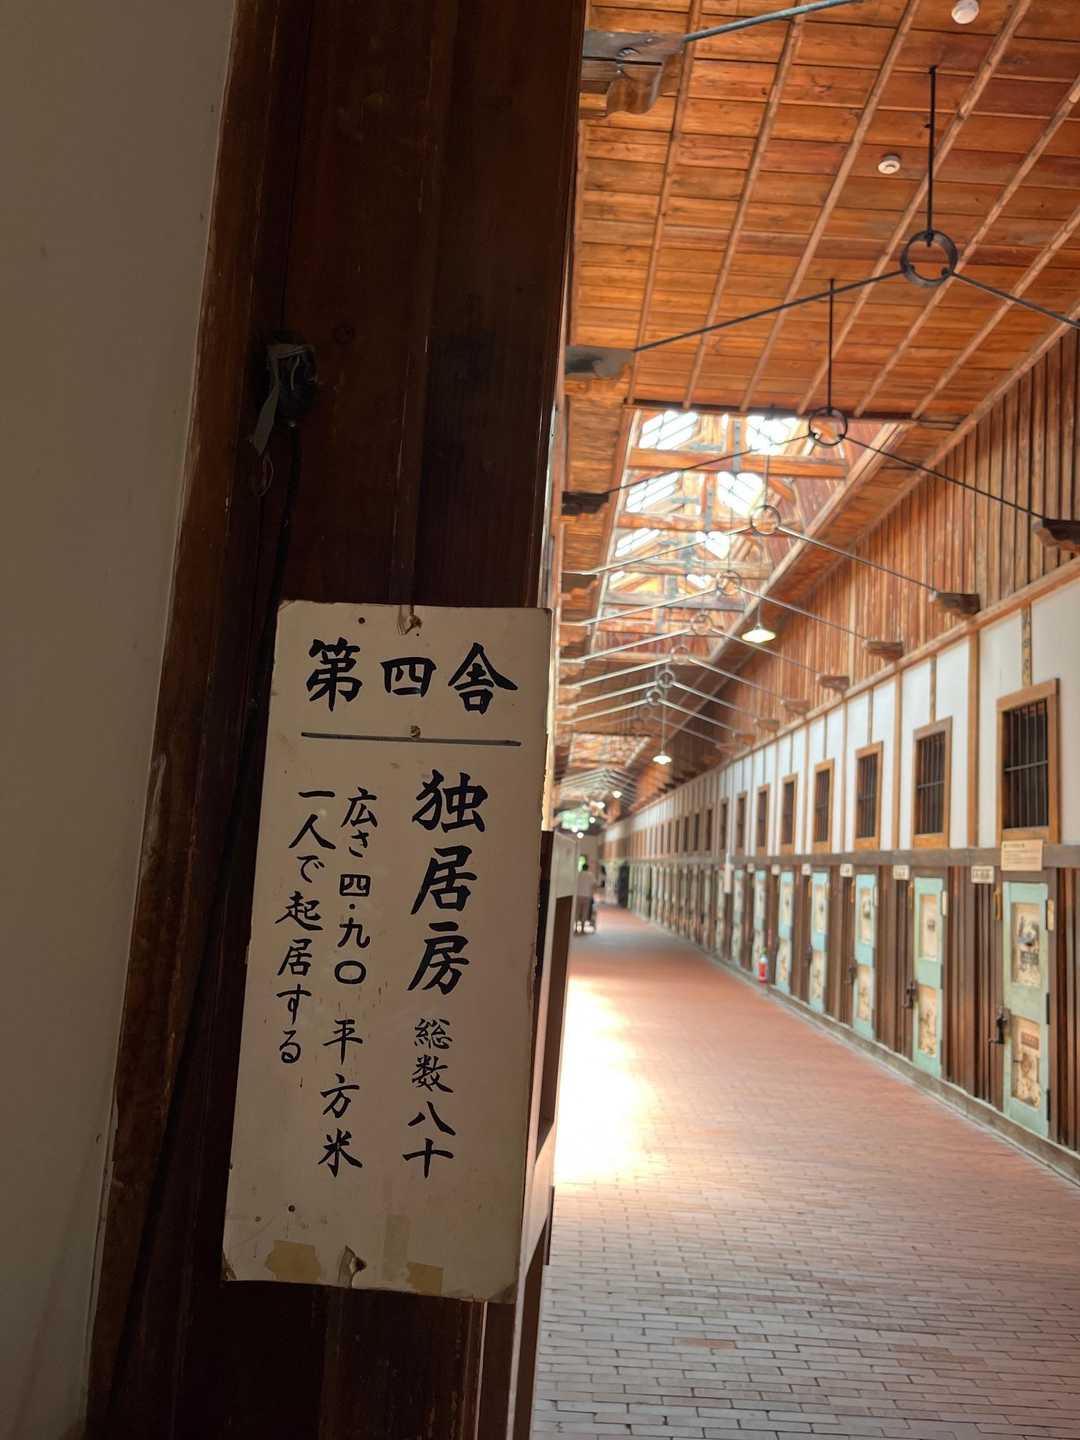 第四舎
独居房 総数八十
広さ四・九〇 平方米
一人で起居する